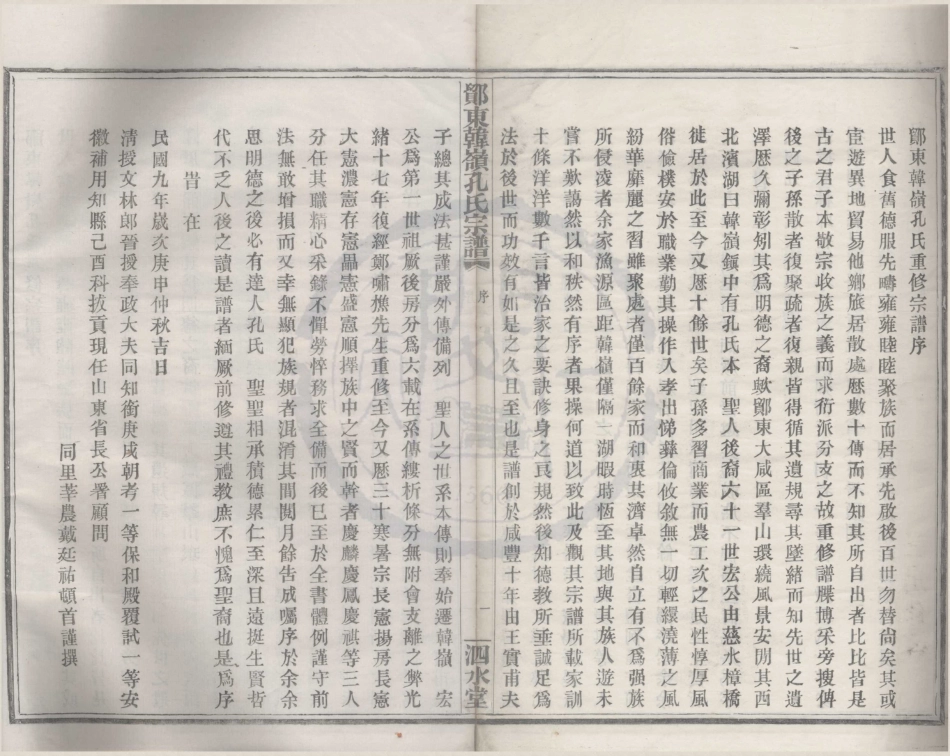 鄮東韓嶺孔氏重修宗譜序
世人食舊德服先疇雍雍睦睦聚族而居承先啟後百世勿替尙矣其或
宦遊異地貿易他鄉旅居散處歷數十傳而不知其所自出者比比皆是
古之君子本敬宗收族之義而求衍派分支之故重修譜牒博采旁搜俾
後之子孫散者復聚疏者復親皆得循其遺規尋其墜緒而知先世之遺
澤歷久彌彰矧其爲明德之裔歟鄮東大咸區羣山環繞風景安閒其西
北濱湖曰韓嶺鎭中有孔氏本　聖人後裔六十一世宏公由慈水樟橋
徙居於此至今又歷十餘世矣子孫多習商業而農工次之民性惇厚風
俗儉樸安於職業勤其操作入孝出悌彝倫攸敘無一切輕繯澆薄之風
紛華靡麗之習雖聚處者僅百餘家而和衷共濟卓然自立有不爲强族
所侵凌者余家漁源區距韓嶺僅隔一湖暇時恆至其地與其族人遊未
嘗不歎藹然以和秩然有序者果操何道以致此及觀其宗譜所載家訓
十條洋洋數千言皆治家之要訣修身之眞規然後知德教所垂誠足爲
法於後世而功效有如是之久且至也是譜創於咸豐十年由王實甫夫
鄮東韓嶺孔氏宗譜
序
一
泗水堂
子總其成法甚謹嚴外傳備列　聖人之世系本傳則奉始遷韓嶺　宏
公爲第一世祖厥後房分爲六載在系傳縷析條分無附會支離之弊光
緒十七年復經鄭嘯樵先生重修至今又歷三十寒暑宗長憲揚房長憲
大憲濃憲存憲品憲盛憲順擇族中之賢而幹者慶麟慶鳳慶祺等三人
分任其職精心采錄不憚勞悴務求全備而後已至於全書體例謹守前
法無敢增損而又幸無顯犯族規者混淆其間閱月餘告成囑序於余余
思明德之後必有達人孔氏　聖聖相承積德累仁至深且遠挺生賢哲
代不乏人後之讀是譜者緬厥前修遵其禮教庶不愧爲聖裔也是爲序
旹　在
民國九年歲次庚申仲秋吉日
淸授文林郎晉授奉政大夫同知銜庚戌朝考一等保和殿覆試一等安
徽補用知縣己酉科拔貢現任山東省長公署顧問
同里莘農戴廷祐頓首謹撰